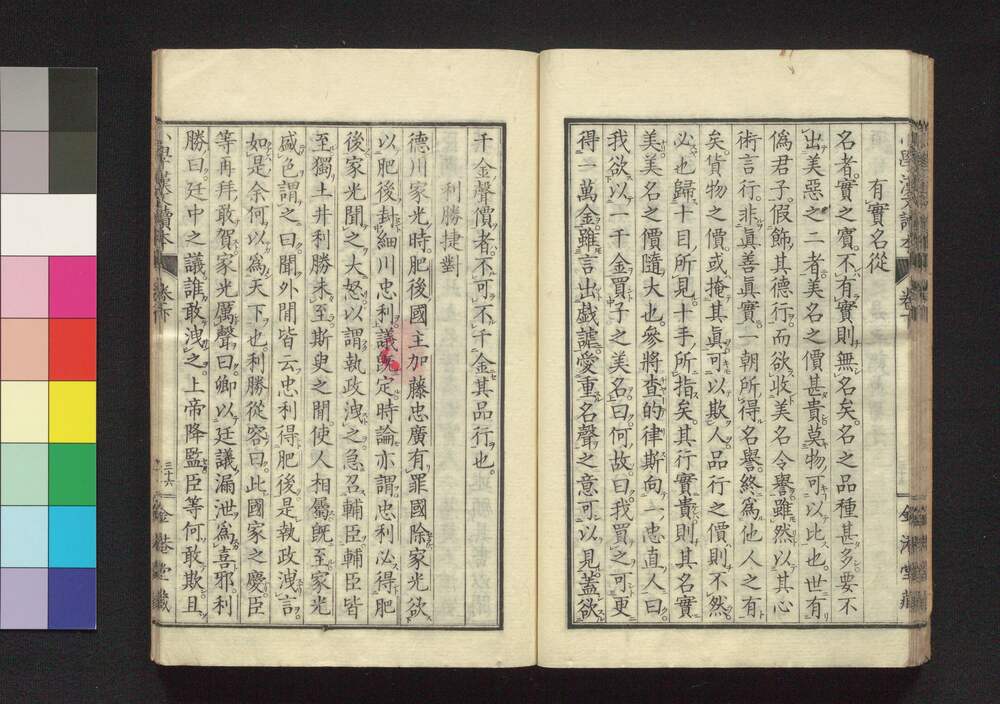 有實名從
名者。實之賓。不有實則無名矣。名之品種甚多。要不
出美惡之二者。美名之價甚貴。莫物可以比也。世有
僞君子。假飾其德行。而欲收美名令譽。雖然以其心
術言行。非眞善眞實。一朝所得名譽。終爲他人之有
矣。貨物之價。或掩其眞。可以欺人。品行之價則不然。
必也歸十目所見。十手所指矣。其行實貴則其名實
美。美名之價隨大也。參將查的律斯向一忠直人曰。
我欲以一千金買子之美名。曰何故。曰我買之可更
得二萬金。雖言出戲謔。愛重名聲之意可以見。蓋欲
千金聲價者。不可不千金其品行也。
利勝捷對
德川家光時肥後國主加藤忠廣有罪國除。家光欲
以肥後封細川忠利。議既定。時論亦謂忠利必得肥
後。家光聞之大怒。以謂執政洩之。急召輔臣。輔臣皆
至。獨土井利勝未至。斯臾之間使人相屬。既至。家光
盛色謂之曰。聞外間皆云忠利得肥後。是執政洩言。
如是余何以爲天下也。利勝從容曰。此國家之慶。臣
等再拜敢賀。家光厲聲曰。卿以廷議漏泄爲喜邪。利
勝曰。廷中之議誰敢洩之。上帝降監。臣等何敢欺。且
小學漢文讀本
卷下
三十六
金港堂藏